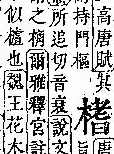 高唐賦
榰
持門樞
所追切音衰說文
之桷爾雅釋宮註
似櫨也魏王花木